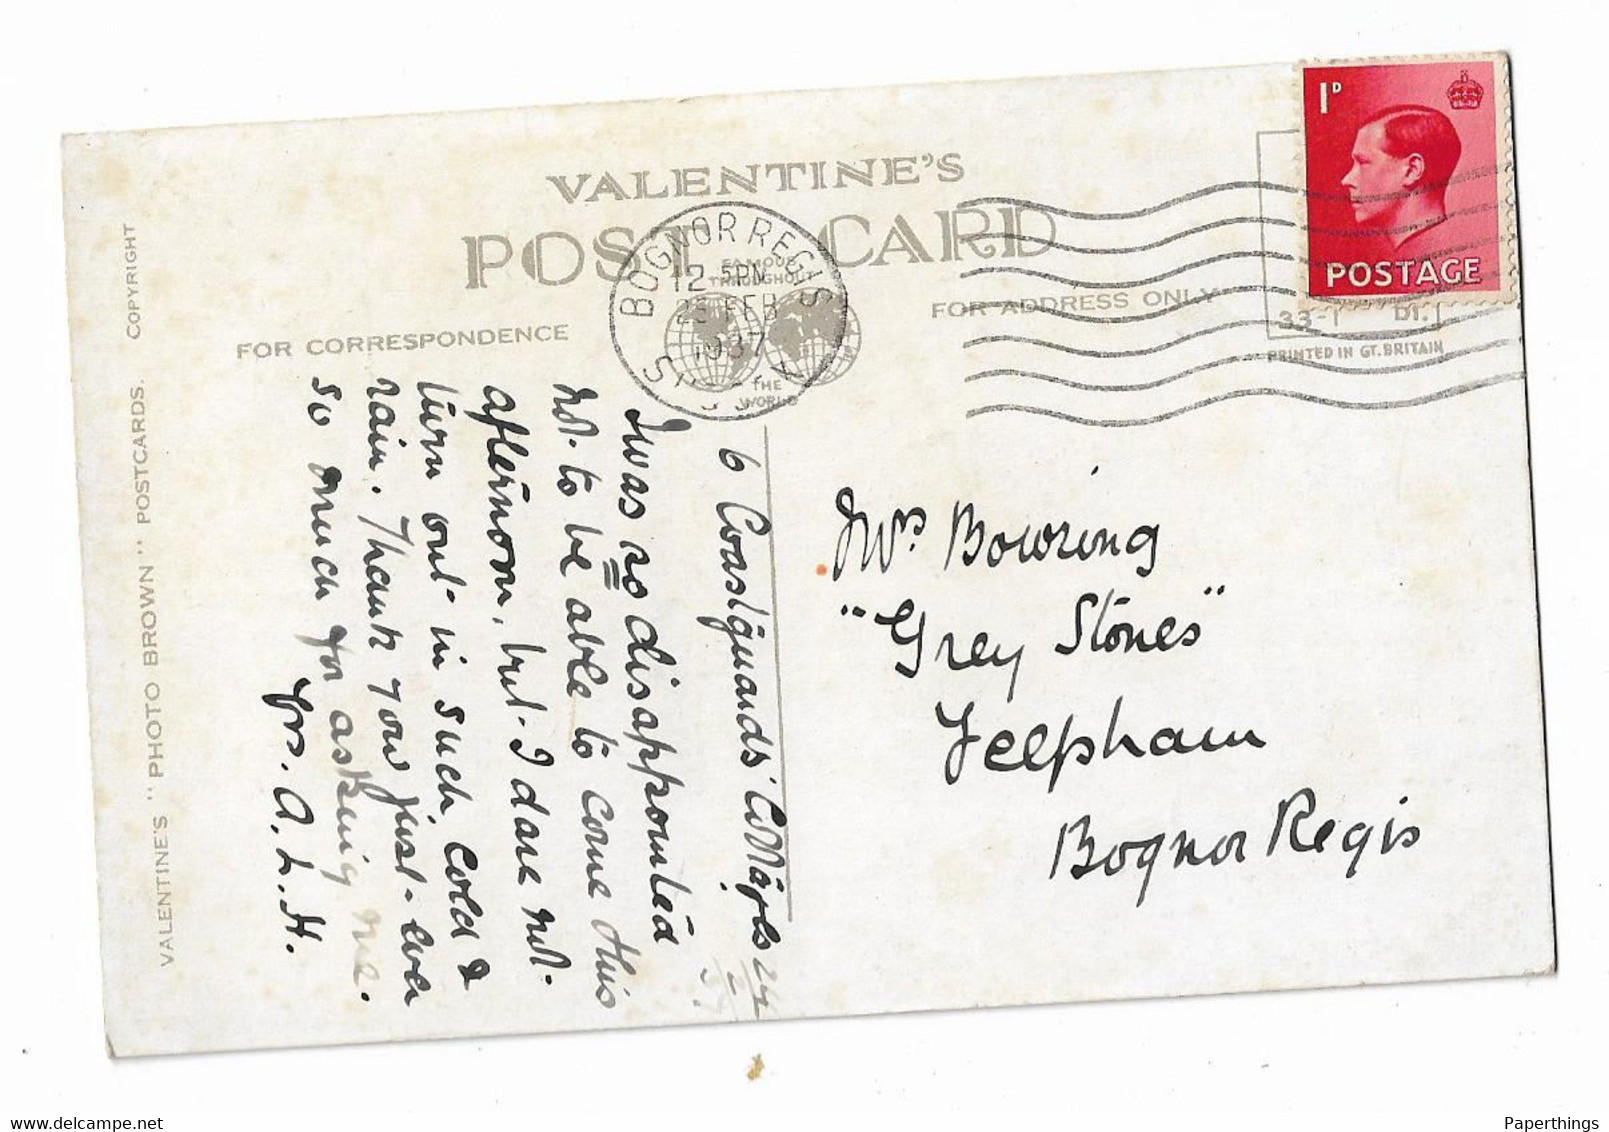 VALENTINE'S
POST CARD
FAMOUS THROUGHOUT
THE WORLD
FOR CORRESPONDENCE
FOR ADDRESS ONLY
BOGNOR REGIS
12 5PM
25 FEB
1937
1D
POSTAGE
33-
PRINTED IN GT. BRITAIN
VALENTINE'S "PHOTO BROWN" POSTCARDS. COPYRIGHT
6 Coastguards' Cottages
I was so disappointed
not to be able to come this
afternoon, but I dare not
turn out in such cold &
rain. Thank you just ever
so much for asking me.
Yrs. A. L. H.
Mrs Bowring
"Grey Stones"
Felpham
Bognor Regis
Paperthings